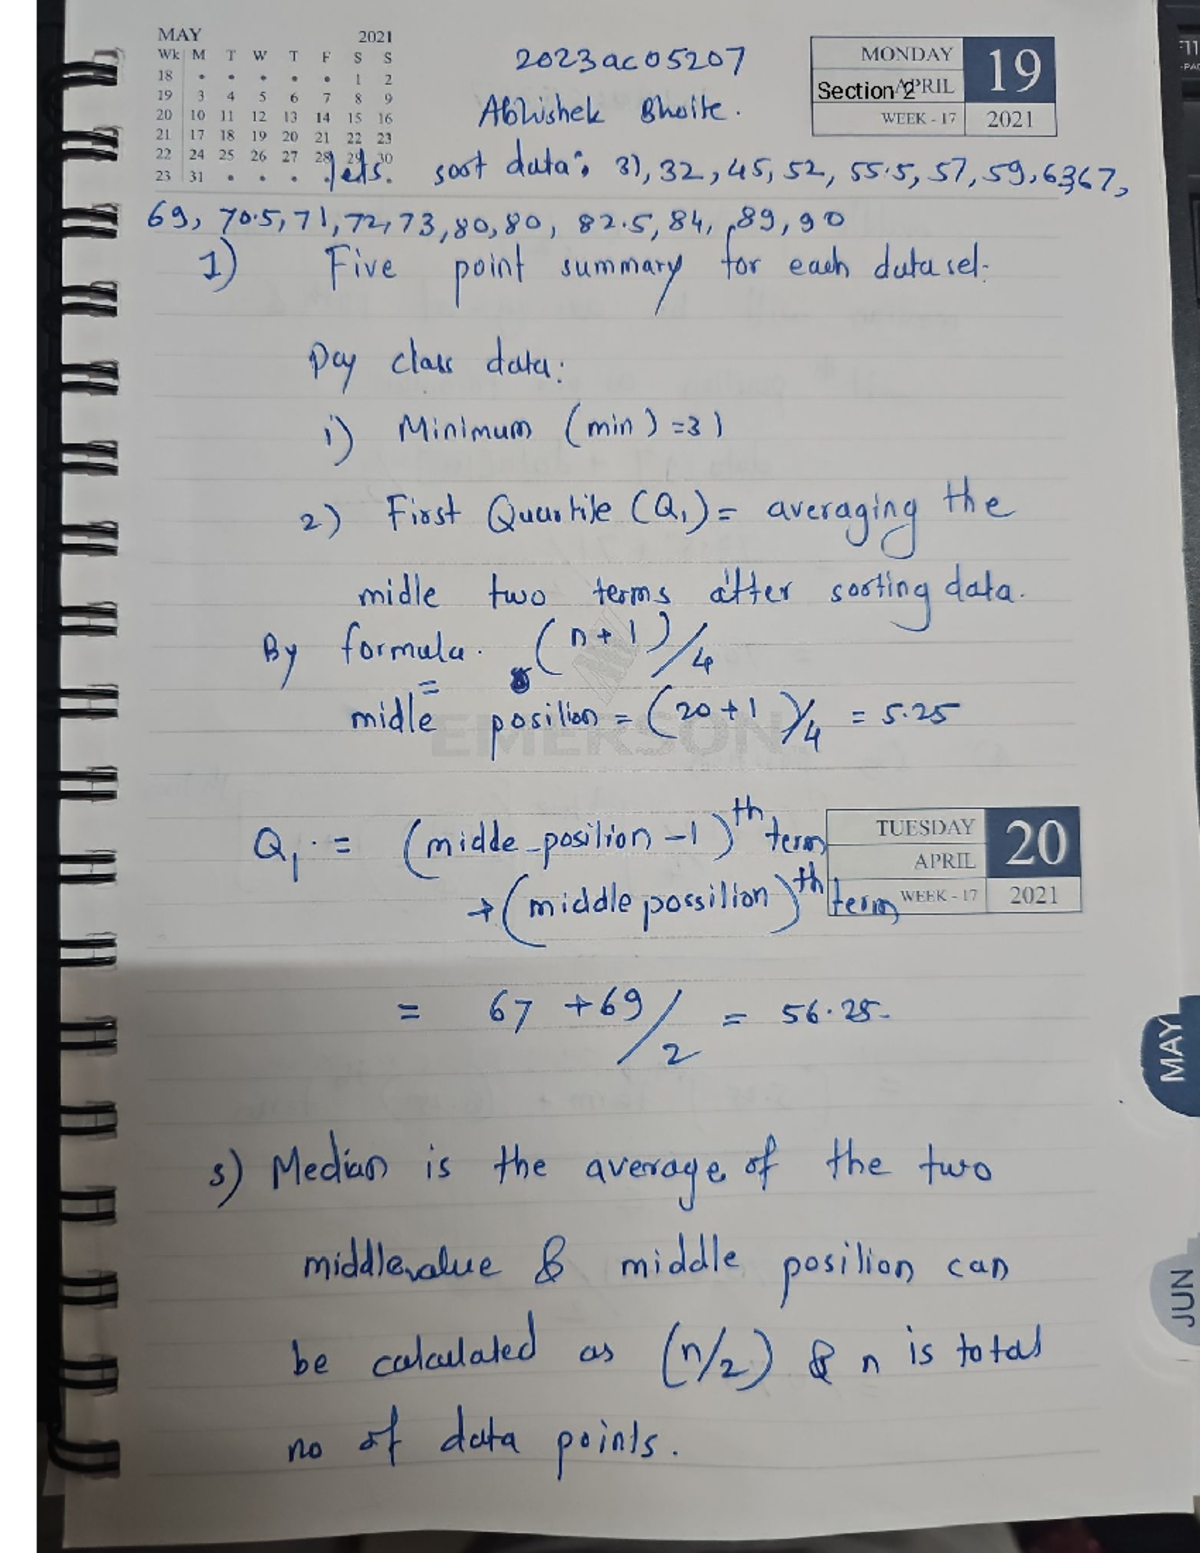 MAY 2021
Wk M T W T F S S
18 • • • • • 1 2
19 3 4 5 6 7 8 9
20 10 11 12 13 14 15 16
21 17 18 19 20 21 22 23
22 24 25 26 27 28 29 30
23 31 • • • •
2023ac05207
Abhishek Bhoite.
MONDAY 19
Section 2 APRIL
WEEK - 17 2021
lets. sort data: 31, 32, 45, 52, 55.5, 57, 59, 63 67,
69, 70.5, 71, 72, 73, 80, 80, 82.5, 84, 89, 90
1) Five point summary for each data set.
Day class data:
i) Minimum (min) = 31
2) First Quartile (Q1) = averaging the
midle two terms after sorting data.
By formula. (n+1)/4
=
midle position = (20+1)/4 = 5.25
EMERSON
Q1 = (midde-position -1)th term
TUESDAY 20
APRIL
→ (middle possition)th term
WEEK - 17 2021
= 67 + 69 / 2 = 56.25.
3) Median is the average of the two
middle value & middle position can
be calculated as (n/2) & n is total
no of data points.
MAY
JUN